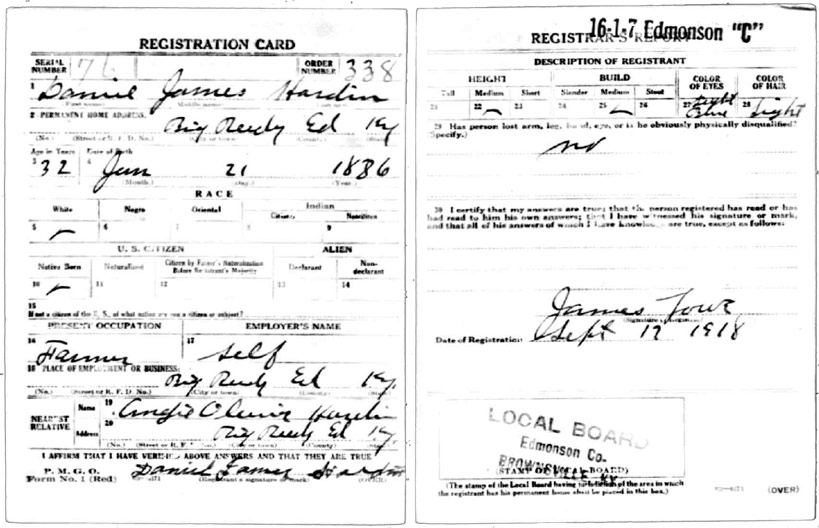 REGISTRATION CARD
SERIAL NUMBER 76 ORDER NUMBER 338
1 Daniel James Hardin
(First name) (Middle name)
2 PERMANENT HOME ADDRESS:
Big Reedy Ed Ky
(No.) (Street or R. F. D. No.) (City or town) (County) (State)
Age in Years Date of Birth
3 32 4 Jan 21 1886
(Month.) (Day.) (Year.)
RACE
White Negro Oriental Indian
Citizen Noncitizen
5 6 7 8 9
U. S. CITIZEN ALIEN
Native Born Naturalized Citizen by Father's Naturalization Before Registrant's Majority Declarant Non-declarant
10 11 12 13 14
15
If not a citizen of the U. S., of what nation are you a citizen or subject?
PRESENT OCCUPATION EMPLOYER'S NAME
16 Farmer 17 self
18 PLACE OF EMPLOYMENT OR BUSINESS:
Big Reedy Ed Ky.
(No.) (Street or R. F. D. No.) (City or town) (County) (State)
NEAREST RELATIVE Name 19 Hardin
Address 20 Big Reedy Ed Ky.
(No.) (Street or R. F. D. No.) (City or town) (County) (State)
I AFFIRM THAT I HAVE VERIFIED ABOVE ANSWERS AND THAT THEY ARE TRUE
P. M. G. O.
Form No. 1 (Red) Daniel James Hardin
(Registrant's signature or mark) (OVER)
16-1-7 Edmonson "C"
REGISTRAR'S REPORT
DESCRIPTION OF REGISTRANT
HEIGHT BUILD COLOR OF EYES COLOR OF HAIR
Tall Medium Short Slender Medium Stout
21 22 23 24 25 26 27 Light Blue 28 Light
29 Has person lost arm, leg, hand, eye, or is he obviously physically disqualified?
(Specify.)
no
30 I certify that my answers are true; that the person registered has read or has
had read to him his own answers; that I have witnessed his signature or mark,
and that all of his answers of which I have knowledge are true, except as follows:
James
Date of Registration Sept 12 1918
LOCAL BOARD
Edmonson Co.
BROWNSVILLE, KY.
(STAMP OF LOCAL BOARD)
(The stamp of the Local Board having jurisdiction of the area in which
the registrant has his permanent home shall be placed in this box.)
(OVER)